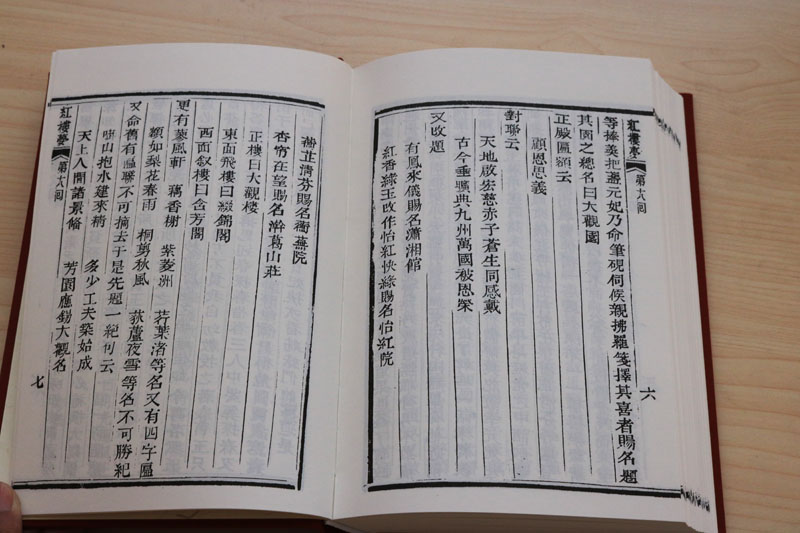 紅樓夢 第十八回
等捧羹把盞元妃乃命筆硯伺候親拂羅箋擇其喜者賜名題
其園之總名曰大觀園
正殿匾額云
顧恩思義
對聯云
天地啟宏慈赤子蒼生同感戴
古今垂曠典九州萬國被恩榮
又改題
有鳳來儀賜名瀟湘館
紅香綠玉改作怡紅快綠賜名怡紅院
六
蘅芷清芬賜名蘅蕪院
杏帘在望賜名澣葛山莊
正樓曰大觀樓
東面飛樓曰綴錦閣
西面敘樓曰含芳閣
更有蓼風軒 藕香榭 紫菱洲 荇葉渚等名又有四字匾
額如梨花春雨 桐剪秋風 荻蘆夜雪等名不可勝紀
又命舊有匾聯不可摘去于是先題一絕句云
啣山抱水建來精 多少工夫築始成
天上人間諸景備 芳園應錫大觀名
紅樓夢 第十八回
七